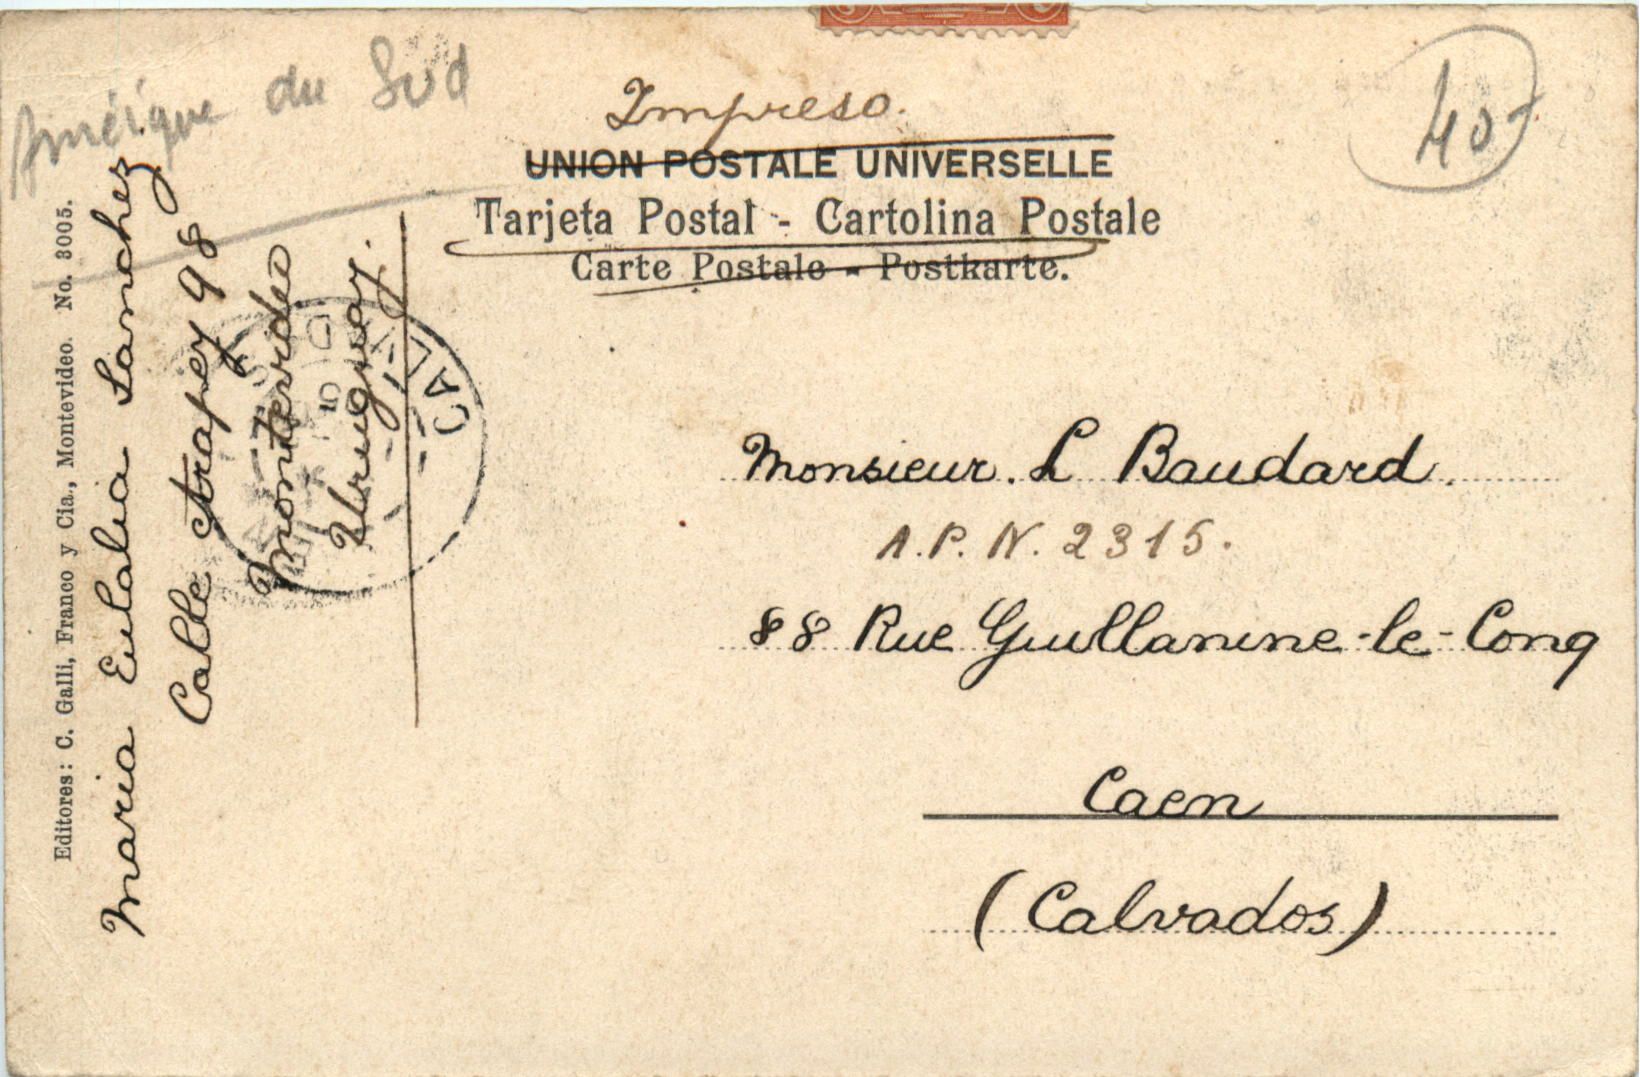 Amérique du Sud
Impreso.
40
UNION POSTALE UNIVERSELLE
Tarjeta Postal - Cartolina Postale
Carte Postale - Postkarte.
Editores: C. Galli, Franco y Cia., Montevideo. No. 3005.
Maria Eulalia Sanchez
Calle Arapey 98
Montevideo
Uruguay.
CALV
Monsieur. L Baudard.
A.P. N. 2315.
88 Rue Guillanme-le-Conq
Caen
(Calvados)